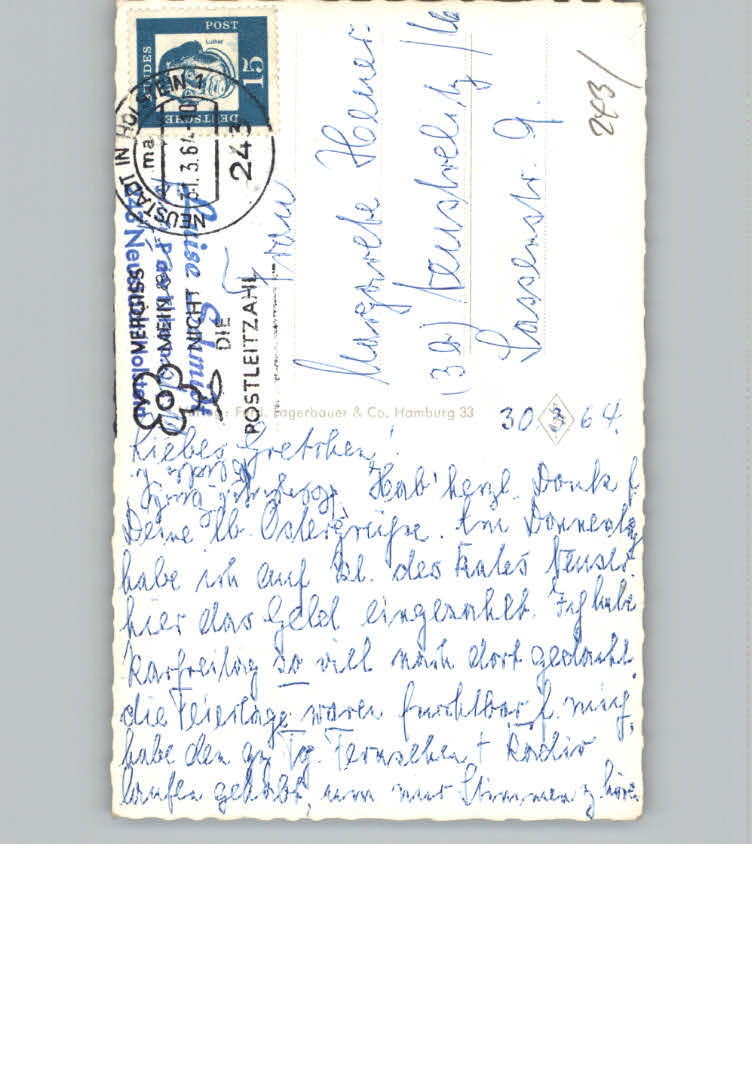 POST
Luther
15
BUNDES
DEUTSCHE
NEUSTADT IN HOLSTEIN 1
243
VERGISS
MEIN
NICHT
DIE
POSTLEITZAHL
Luise Schmidt
Frau
Margarete
(3a) Neustrelitz /
Lassenstr. 9.
243/
Fagerbauer & Co. Hamburg 33
30. 64.
Liebes Gretchen!
Hab' herzl. Dank f.
Deine lb. Ostergrüße. Am Donnerstag
habe ich auf des Rates
hier das Geld eingezahlt. Ich habe
Karfreitag so viel nach dort gedacht.
die Feiertage waren furchtbar f. mich,
habe den gz. Tg. Fernsehen + Radio
laufen gehabt, um nur Stimmen z. hören